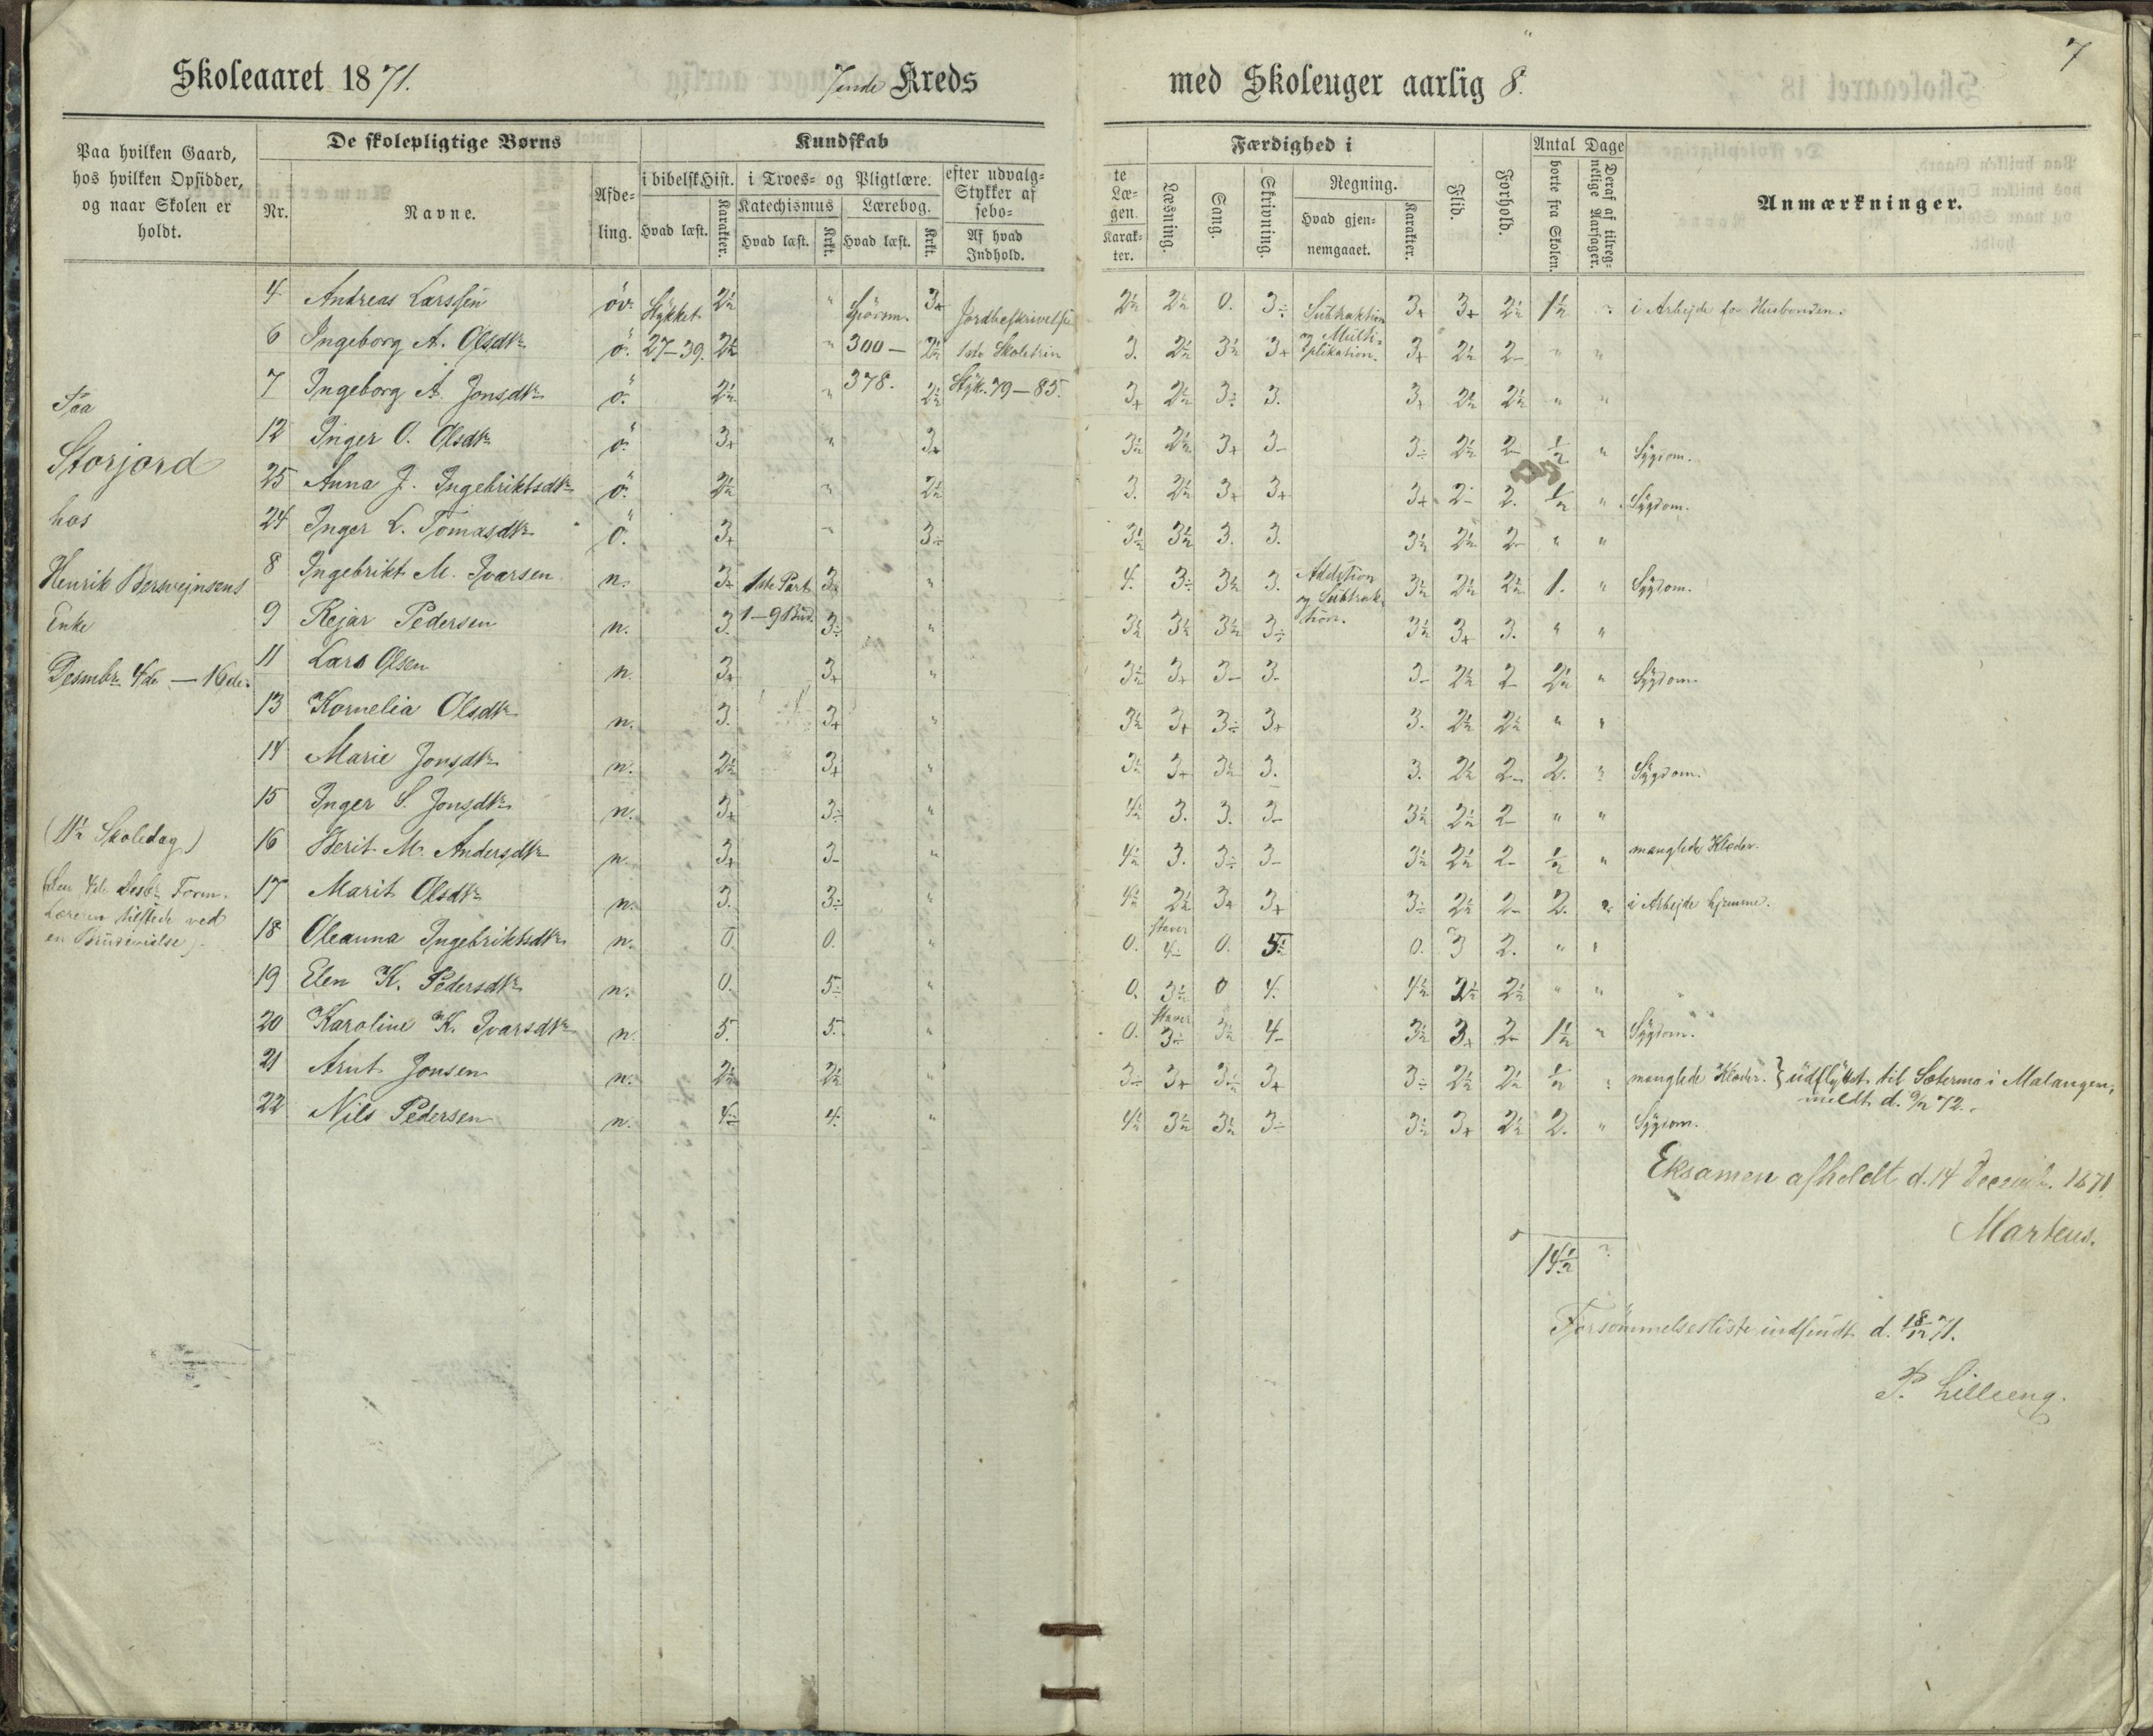 7
Skoleaaret 1871. 7ende Kreds med Skoleuger aarlig 8.
Paa hvilken Gaard, hos hvilken Opsidder, og naar Skolen er holdt.
De skolepligtige Børns
Nr. Navne. Afdeling.
Kundskab
i bibelsk Hist. i Troes- og Pligtlære. efter udvalgte Stykker af Læsebogen.
Hvad læst. Karakter. Katechismus Hvad læst. Krkt. Lærebog. Hvad læst. Krkt. Af hvad Indhold. Karakter.
Færdighed i
Læsning. Sang. Skrivning. Regning. Hvad gjennemgaaet. Karakter.
Flid. Forhold. Antal Dage borte fra Skolen. Deraf af tilregnelige Aarsager.
Anmærkninger.
Paa
Storjord
hos
Henrik Berwejnsens
Enke
Desmbr. 4de — 16de.
(11½ Skoledag)
(den 4de Desbr. Form.
Læreren tilstede ved
en Brudevielse).
4 Andreas Larssen öv. Stÿkket 2½ " Spörsm. 3+ Jordbeskrivelse 2½ 2½ 0. 3÷ Subtraktion 3+ 3+ 2½ 1½ i Arbejde for Husbonden.
6 Ingeborg A. Olsdtr. ö. 27–39. 2½ " 300 — 2½ 1ste Skoletrin 3. 2½ 3½ 3+ og Multiplikation. 3+ 2½ 2– " "
7 Ingeborg A. Jonsdtr. ö. 2½ " 378. 2½ Stÿk. 79–85. 3+ 2½ 3÷ 3. 3+ 2½ 2½ " "
12 Inger O. Olsdtr. ö. 3+ " 3+ 3½ 2½ 3+ 3– 3÷ 2½ 2– ½ " Sÿgdom.
25 Anna J. Ingebriktsdtr. ö. 2½ " 2½ 3. 2½ 3+ 3+ 3+ 2– 2. ½ " Sÿgdom.
24 Inger L. Tomasdtr. ö. 3+ " 3÷ 3½ 3½ 3. 3. 3½ 2½ 2– " "
8 Ingebrikt M. Ivarsen n. 3+ 1ste Part 3½ " 4. 3÷ 3½ 3. Addition og Subtraktion. 3½ 2½ 2½ 1. " Sÿgdom.
9 Rejar Pedersen n. 3. 1–9 Bud. 3÷ " 3½ 3½ 3½ 3÷ 3½ 3+ 3. " "
11 Lars Olsen n. 3+ 3+ " 3½ 3+ 3– 3– 3– 2½ 2– 2½ " Sÿgdom.
13 Kornelia Olsdtr. n. 3. 3+ " 3½ 3+ 3÷ 3+ 3. 2½ 2½ " "
14 Marie Jonsdtr. n. 2½ 3+ " 3½ 3+ 3½ 3. 3. 2½ 2– 2. " Sÿgdom.
15 Inger S. Jonsdtr. n. 3+ 3÷ " 4½ 3. 3. 3– 3½ 2½ 2– " "
16 Berit M. Andersdtr. n. 3+ 3– " 4½ 3. 3÷ 3– 3½ 2½ 2– ½ " manglede Klæder.
17 Marit Olsdtr. n. 3. 3÷ " 4½ 2½ 3+ 3+ 3÷ 2½ 2– 2. 2. i Arbejde hjemme.
18 Oleanna Ingebriktsdtr. n. 0. 0. " 0. staver 4– 0. 5÷ 0. 3 2. " "
19 Elen K. Pedersdtr. n. 0. 5÷ " 0. 3½ 0 4. 4½ 2½ 2½ " "
20 Karoline K. Ivarsdtr. n. 5. 5. " 0. staver 3÷ 3½ 4– 3½ 3+ 2– 1½ " Sÿgdom.
21 Arnt Jonsen n. 2½ 2½ " 3÷ 3+ 3½ 3+ 3÷ 2½ 2½ ½ " manglede Klæder. } udflÿttet til Sætermo i Malangen, meldt d. 9/2 72.
22 Nils Pedersen n. 4÷ 4. " 4½ 3½ 3½ 3÷ 3½ 3+ 2½ 2. " Sÿgdom.
Eksamen afholdt d. 14 Decemb. 1871.
Martens.
14½
Forsömmelsesliste indsendt d. 18/12 71.
P. Lilleeng.